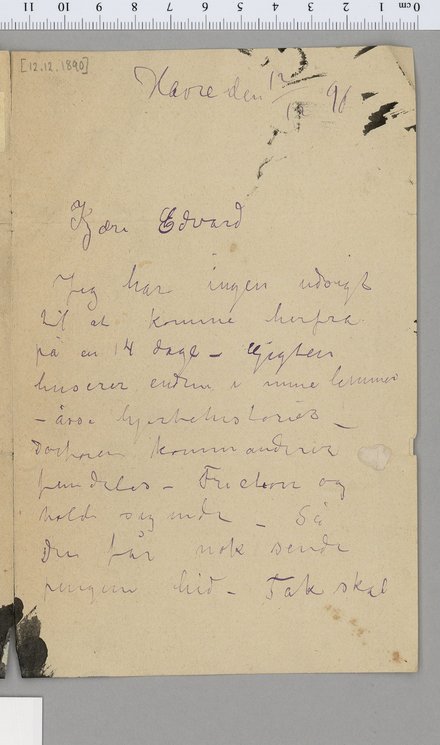 [12.12.1890]
Havre den 12/12 90
Kjære Edvard
Jeg har ingen udsigt
til at komme herfra
på en 14 dage – Gigten
huserer endnu i mine lemmer
– også hjertehistorier –
Doktoren kommanderer
fremdeles – Friction og
holde sig inde – Så
Du får nok sende
pengene hid – Tak skal